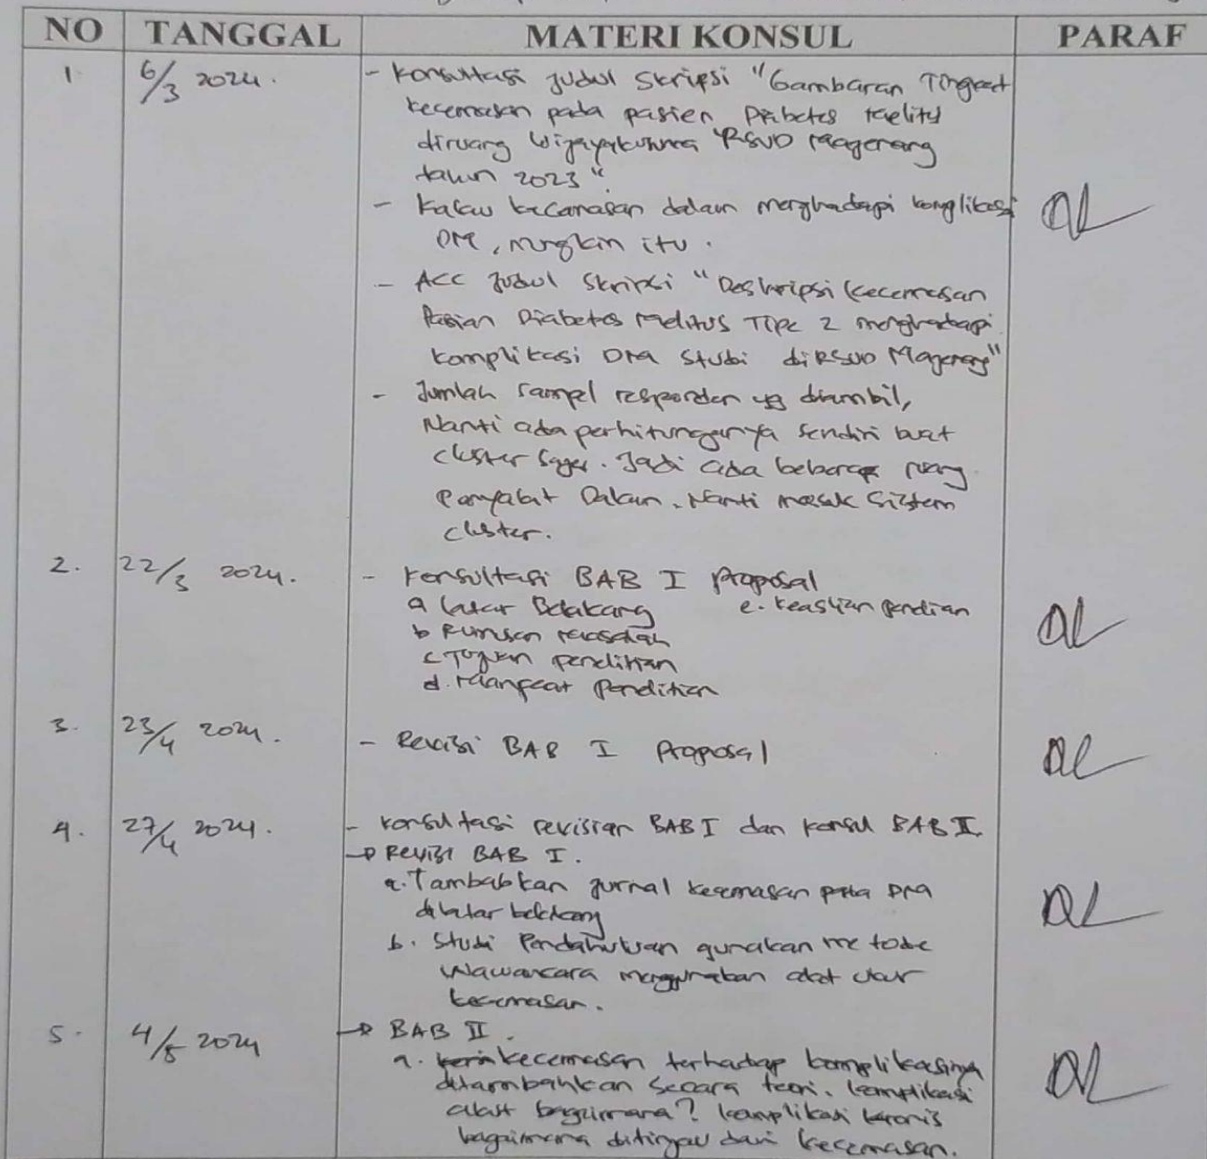 NO TANGGAL MATERI KONSUL PARAF
1 6/3 2024. - Konsultasi Judul Skripsi "Gambaran Tingkat
kecemasan pada pasien Diabetes
diruang Wijayakusuma RSUD Majenang
tahun 2023"
- Kalau kecemasan dalam menghadapi komplikasi
DM, mungkin itu.
- ACC Judul Skripsi "Deskripsi Kecemasan
Pasien Diabetes Melitus Tipe 2 menghadapi
komplikasi DM Studi di RSUD Majenang"
- Jumlah sampel responden yg diambil,
Nanti ada perhitungannya sendiri buat
cluster . Jadi ada beberapa ruang
Penyakit Dalam. Nanti masuk Sistem
cluster.
2. 22/3 2024. - Konsultasi BAB I Proposal
a Latar Belakang e. Keaslian penelitian
b Rumusan Masalah
c Tujuan penelitian
d. Manfaat Penelitian
3. 23/4 2024. - Revisi BAB I Proposal
4. 27/4 2024. - Konsultasi revisian BAB I dan konsul BAB II.
→ Revisi BAB I.
a. Tambahkan jurnal kecemasan pada DM
dilatar belakang
b. Studi Pendahuluan gunakan metode
Wawancara menggunakan alat ukur
kecemasan.
5. 4/5 2024 → BAB II.
a. kecemasan terhadap komplikasinya
ditambahkan secara teori. komplikasi
akut bagaimana? komplikasi kronis
bagaimana ditinjau dari kecemasan.